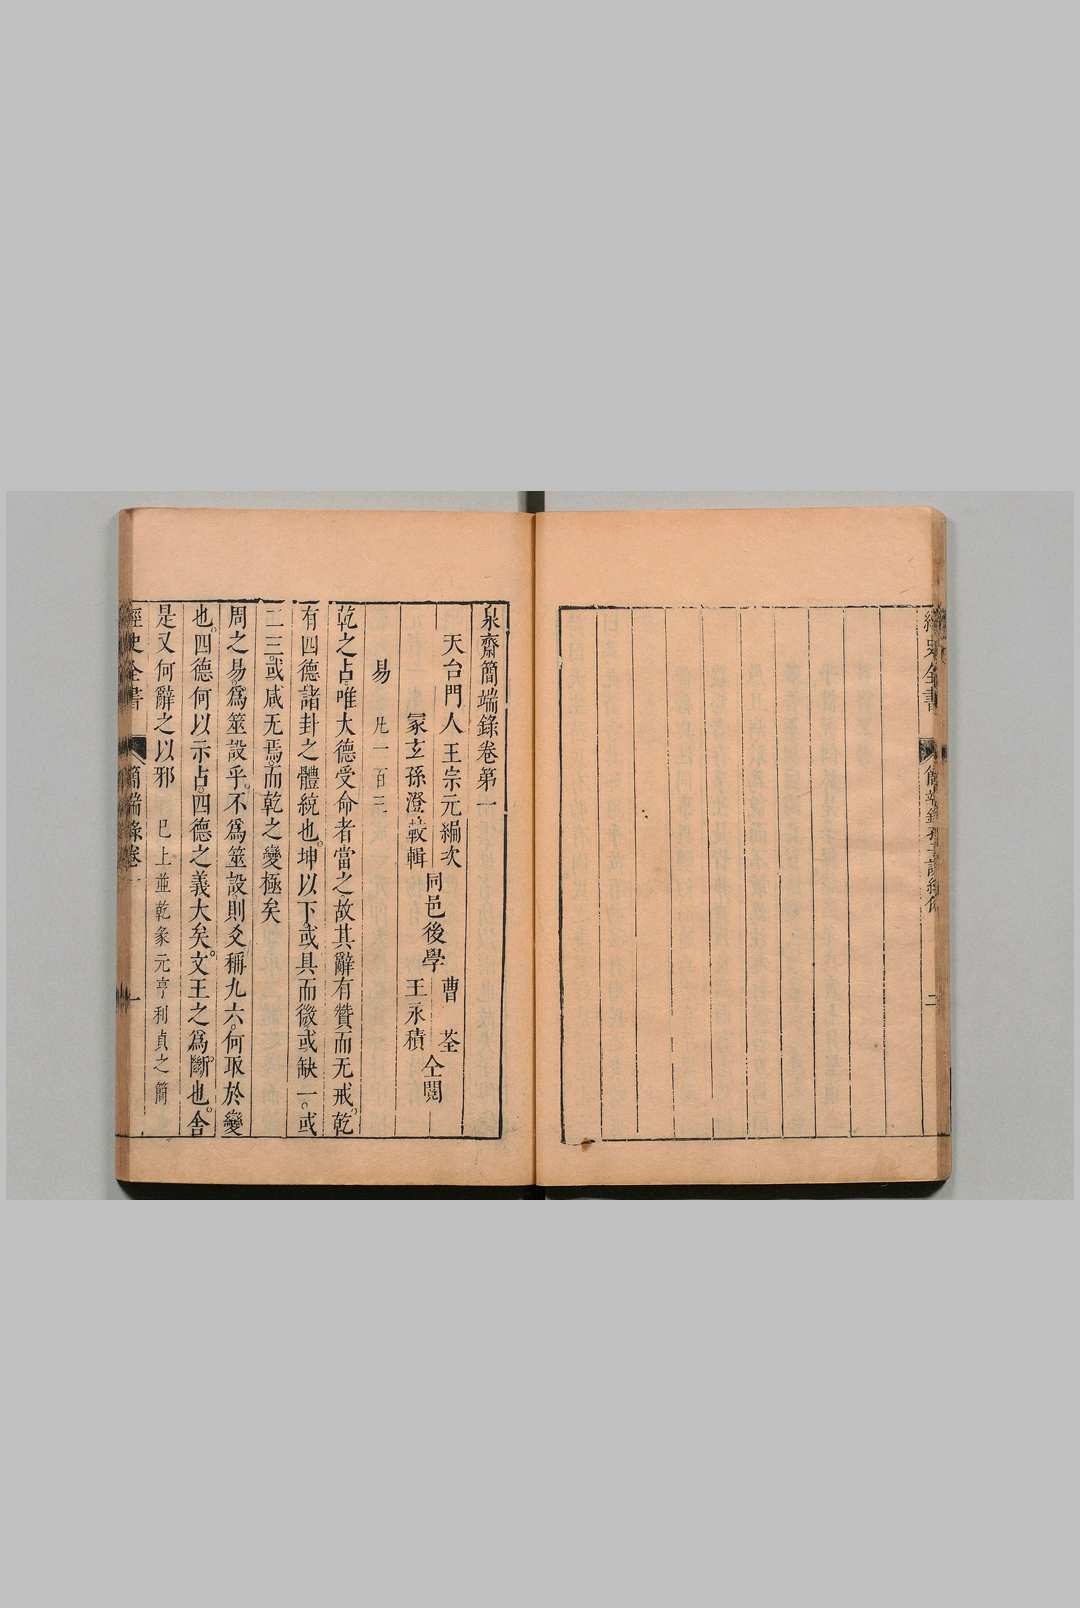 泉齋簡端錄卷第一
天台門人王宗元編次
冢玄孫澄較輯
同邑後學
曹荃
王永積
仝閱
易 凡一百三
乾之占唯大德受命者當之故其辭有贊而无戒乾
有四德諸卦之體統也坤以下或具而微或缺一或
二三或咸无焉而乾之變極矣
周之易爲筮設乎不爲筮設則爻稱九六何取於變
也四德何以示占四德之義大矣文王之爲斷也舍
是又何辭之以邪 已上並乾彖元亨利貞之簡
經史全書 簡端錄卷一 一
經史全書 簡端錄 二